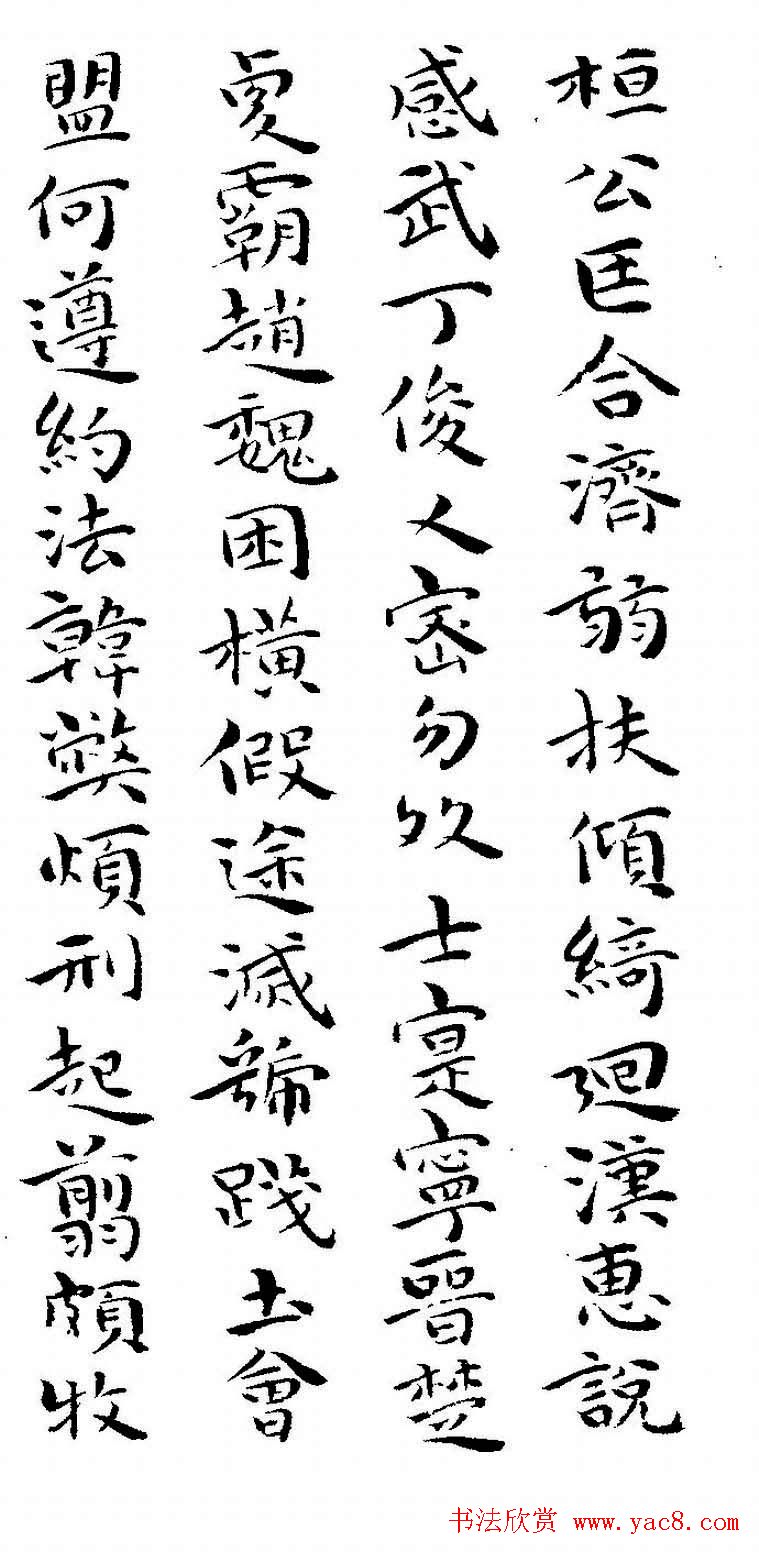 桓公匡合濟弱扶傾綺廻漢惠說
感武丁俊乂密勿多士寔寧晉楚
更霸趙魏困橫假途滅虢踐土會
盟何遵約法韓弊煩刑起翦頗牧
书法欣赏 www.yac8.com